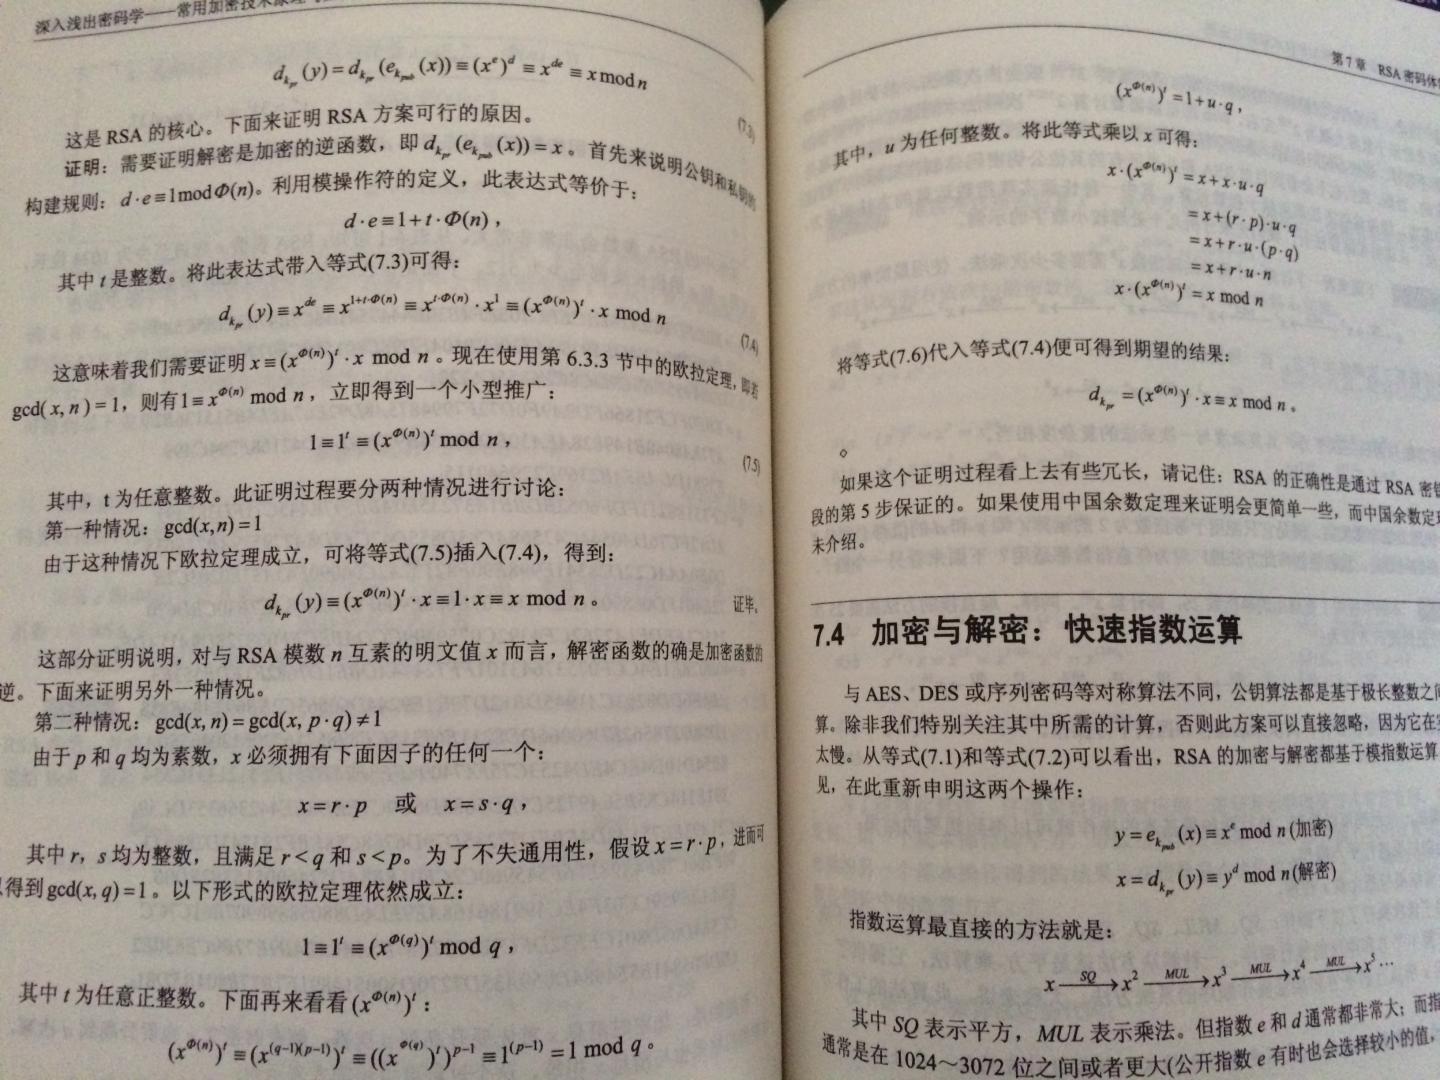 深入浅出密码学——常用加密技术原理
d_{k_{pr}}(y)=d_{k_{pr}}(e_{k_{pub}}(x))≡(x^e)^d≡x^{de}≡x mod n
(7.3)
这是 RSA 的核心。下面来证明 RSA 方案可行的原因。
证明：需要证明解密是加密的逆函数，即 d_{k_{pr}}(e_{k_{pub}}(x))=x。首先来说明公钥和私钥的
构建规则：d·e≡1modΦ(n)。利用模操作符的定义，此表达式等价于：
d·e≡1+t·Φ(n)，
其中 t 是整数。将此表达式带入等式(7.3)可得：
d_{k_{pr}}(y)≡x^{de}≡x^{1+t·Φ(n)}≡x^{t·Φ(n)}·x^1≡(x^{Φ(n)})^t·x mod n
(7.4)
这意味着我们需要证明 x≡(x^{Φ(n)})^t·x mod n。现在使用第 6.3.3 节中的欧拉定理，即若
gcd(x, n)=1，则有1≡x^{Φ(n)} mod n，立即得到一个小型推广：
1≡1^t≡(x^{Φ(n)})^t mod n，
(7.5)
其中，t 为任意整数。此证明过程要分两种情况进行讨论：
第一种情况：gcd(x,n)=1
由于这种情况下欧拉定理成立，可将等式(7.5)插入(7.4)，得到：
d_{k_{pr}}(y)≡(x^{Φ(n)})^t·x≡1·x≡x mod n。 证毕。
这部分证明说明，对与 RSA 模数 n 互素的明文值 x 而言，解密函数的确是加密函数的
逆。下面来证明另外一种情况。
第二种情况：gcd(x, n)=gcd(x, p·q)≠1
由于 p 和 q 均为素数，x 必须拥有下面因子的任何一个：
x=r·p 或 x=s·q，
其中 r，s 均为整数，且满足 r<q 和 s<p。为了不失通用性，假设 x=r·p，进而可
得到 gcd(x, q)=1。以下形式的欧拉定理依然成立：
1≡1^t≡(x^{Φ(q)})^t mod q，
其中 t 为任意正整数。下面再来看看(x^{Φ(n)})^t：
(x^{Φ(n)})^t≡(x^{(q-1)(p-1)})^t≡((x^{Φ(q)})^t)^{p-1}≡1^{(p-1)}=1 mod q。
第 7 章 RSA 密码体
(x^{Φ(n)})^t=1+u·q，
其中，u 为任何整数。将此等式乘以 x 可得：
x·(x^{Φ(n)})^t=x+x·u·q
=x+(r·p)·u·q
=x+r·u·(p·q)
=x+r·u·n
x·(x^{Φ(n)})^t=x mod n
将等式(7.6)代入等式(7.4)便可得到期望的结果：
d_{k_{pr}}=(x^{Φ(n)})^t·x≡x mod n。
。
如果这个证明过程看上去有些冗长，请记住：RSA 的正确性是通过 RSA 密钥
段的第 5 步保证的。如果使用中国余数定理来证明会更简单一些，而中国余数定理
未介绍。
7.4 加密与解密：快速指数运算
与 AES、DES 或序列密码等对称算法不同，公钥算法都是基于极长整数之间
算。除非我们特别关注其中所需的计算，否则此方案可以直接忽略，因为它在实
太慢。从等式(7.1)和等式(7.2)可以看出，RSA 的加密与解密都基于模指数运算
见，在此重新申明这两个操作：
y=e_{k_{pub}}(x)≡x^e mod n (加密)
x=d_{k_{pr}}(y)≡y^d mod n (解密)
指数运算最直接的方法就是：
x —SQ→ x^2 —MUL→ x^3 —MUL→ x^4 —MUL→ x^5…
其中 SQ 表示平方，MUL 表示乘法。但指数 e 和 d 通常都非常大；而指
通常是在 1024～3072 位之间或者更大(公开指数 e 有时也会选择较小的值，